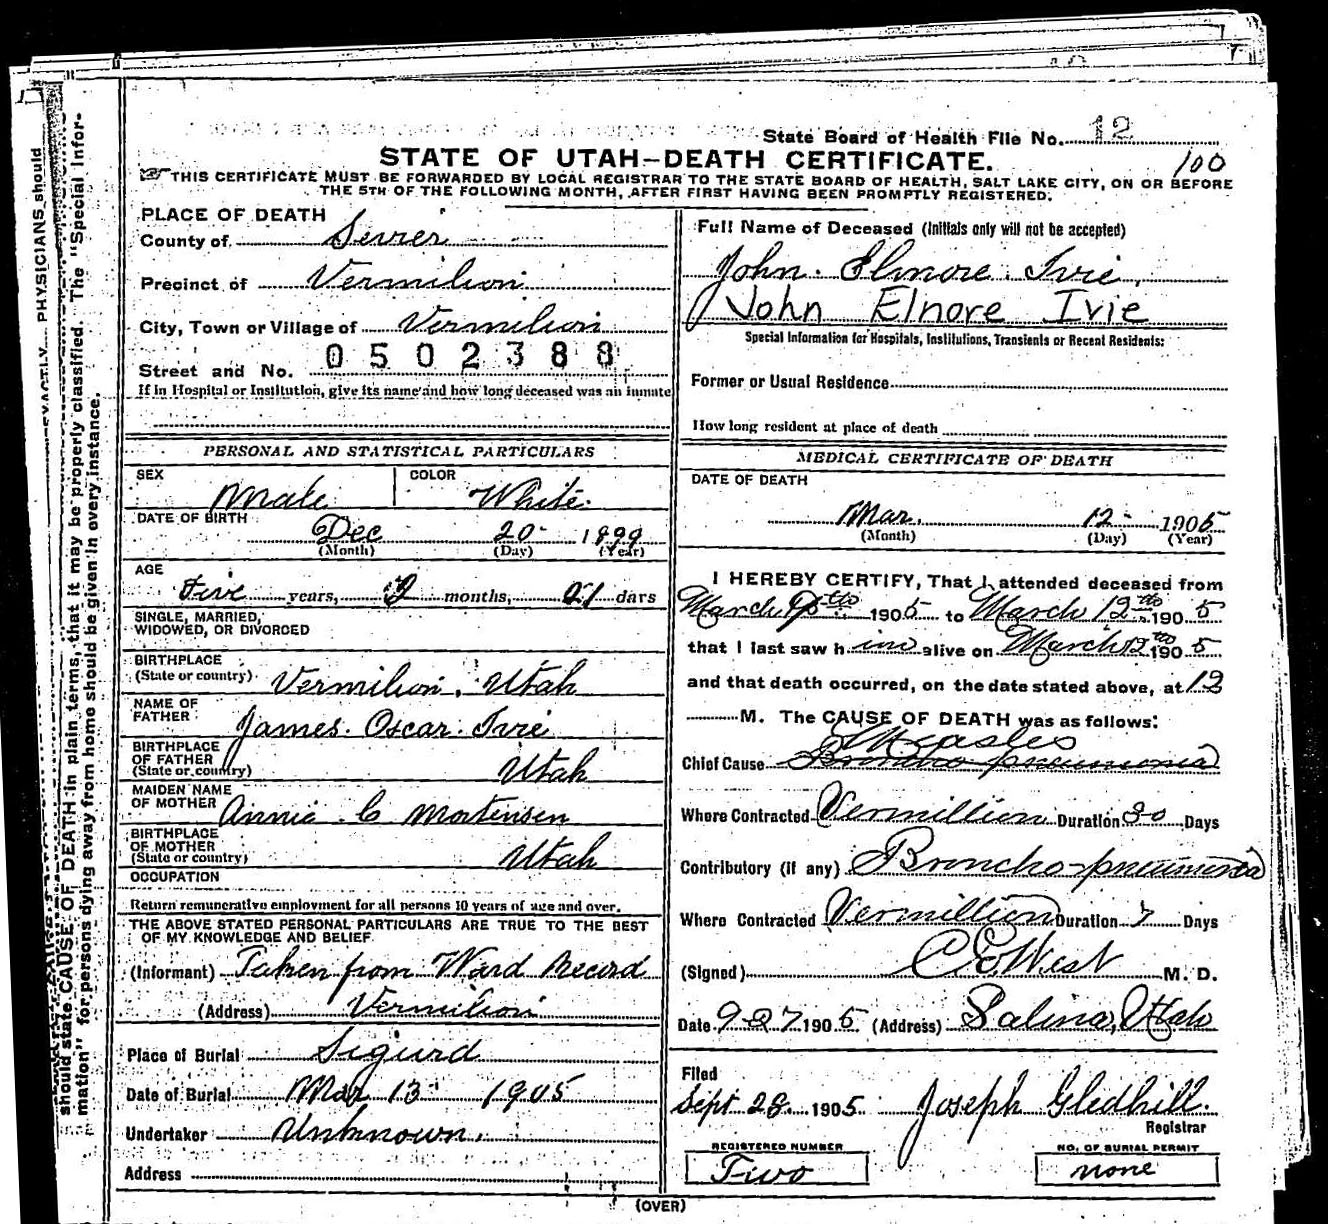 State Board of Health File No. 12
100
STATE OF UTAH—DEATH CERTIFICATE.
THIS CERTIFICATE MUST BE FORWARDED BY LOCAL REGISTRAR TO THE STATE BOARD OF HEALTH, SALT LAKE CITY, ON OR BEFORE
THE 5TH OF THE FOLLOWING MONTH, AFTER FIRST HAVING BEEN PROMPTLY REGISTERED.
PHYSICIANS should
should state CAUSE OF DEATH in plain terms, that it may be properly classified. The "Special Infor-
mation" for persons dying away from home should be given in every instance.
PLACE OF DEATH
County of Sevier
Precinct of Vermilion
City, Town or Village of Vermilion
0502388
Street and No.
If in Hospital or Institution, give its name and how long deceased was an inmate
PERSONAL AND STATISTICAL PARTICULARS
SEX Male COLOR White
DATE OF BIRTH Dec 20 1899
(Month) (Day) (Year)
AGE
Five years, 2 months, 21 days
SINGLE, MARRIED,
WIDOWED, OR DIVORCED
BIRTHPLACE
(State or country) Vermilion, Utah
NAME OF
FATHER James Oscar Ivie
BIRTHPLACE
OF FATHER
(State or country) Utah
MAIDEN NAME
OF MOTHER Annie C Mortensen
BIRTHPLACE
OF MOTHER
(State or country) Utah
OCCUPATION
Return remunerative employment for all persons 10 years of age and over.
THE ABOVE STATED PERSONAL PARTICULARS ARE TRUE TO THE BEST
OF MY KNOWLEDGE AND BELIEF
(Informant) Taken from Ward Record
(Address) Vermilion
Place of Burial Sigurd
Date of Burial Mar 13 1905
Undertaker Unknown.
Address
Full Name of Deceased (Initials only will not be accepted)
John Elnore Ivie
John Elnore Ivie
Special Information for Hospitals, Institutions, Transients or Recent Residents:
Former or Usual Residence
How long resident at place of death
MEDICAL CERTIFICATE OF DEATH
DATE OF DEATH
Mar. 12 1905
(Month) (Day) (Year)
I HEREBY CERTIFY, That I attended deceased from
March 190 5 to March 12th 190 5
that I last saw h im alive on March 12th 190 5
and that death occurred, on the date stated above, at 12
M. The CAUSE OF DEATH was as follows:
Measles
Chief Cause Broncho pneumonia
Where Contracted Vermillion Duration 30 Days
Contributory (if any) Broncho-pneumonia
Where Contracted Vermillion Duration 7 Days
(Signed) C E West M. D.
Date 9-27 190 5. (Address) Salina, Utah
Filed
Sept 28. 1905 Joseph Gledhill.
Registrar
REGISTERED NUMBER
Two
NO. OF BURIAL PERMIT
none
(OVER)